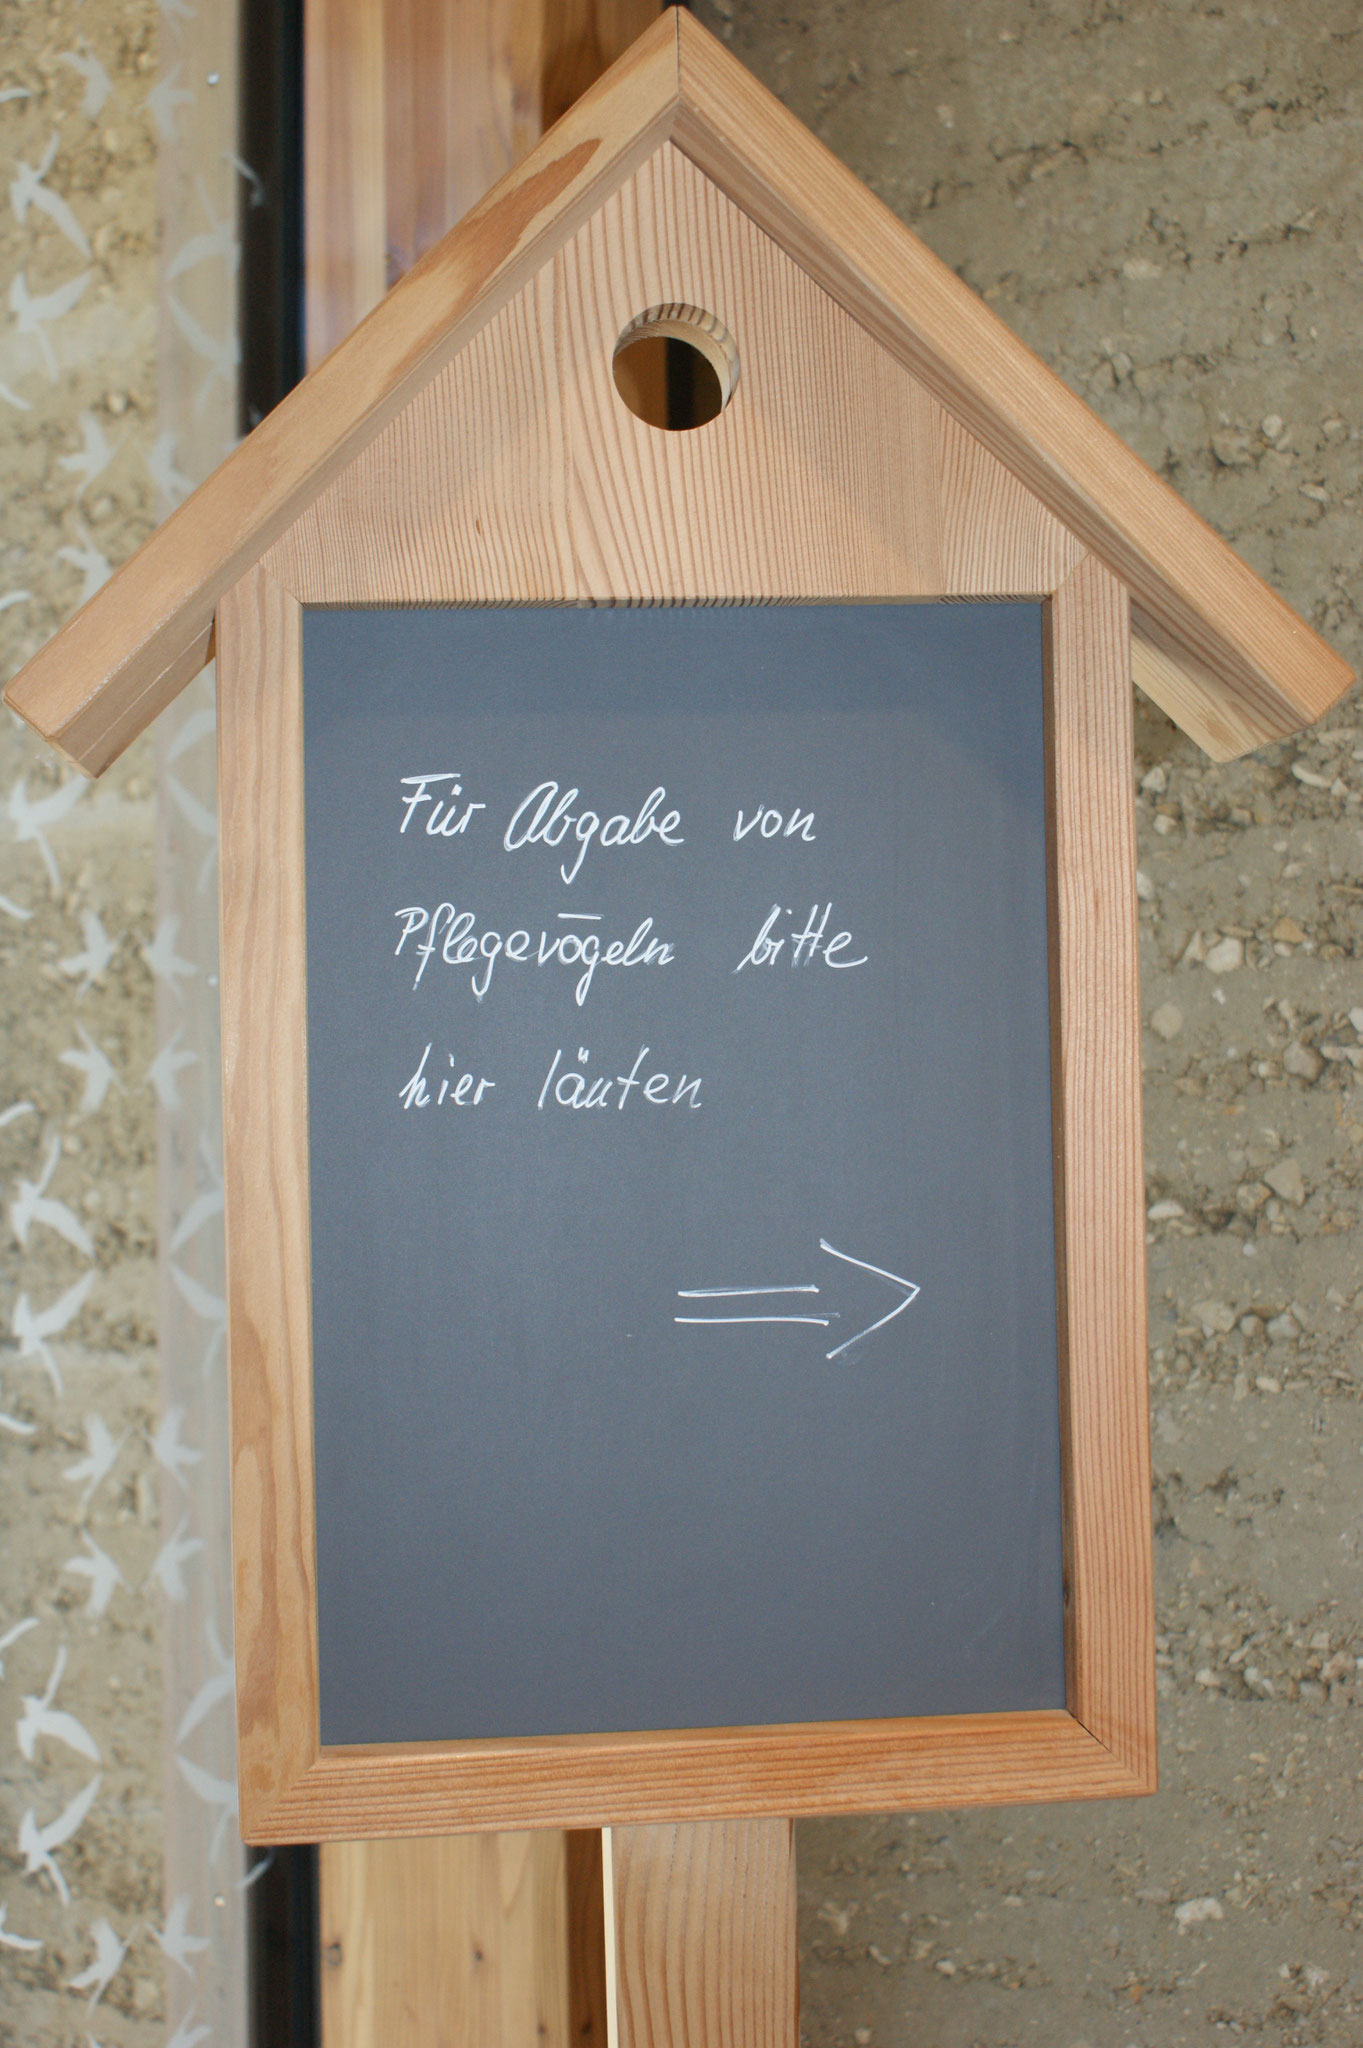 Für Abgabe von
Pflegevögeln bitte
hier läuten